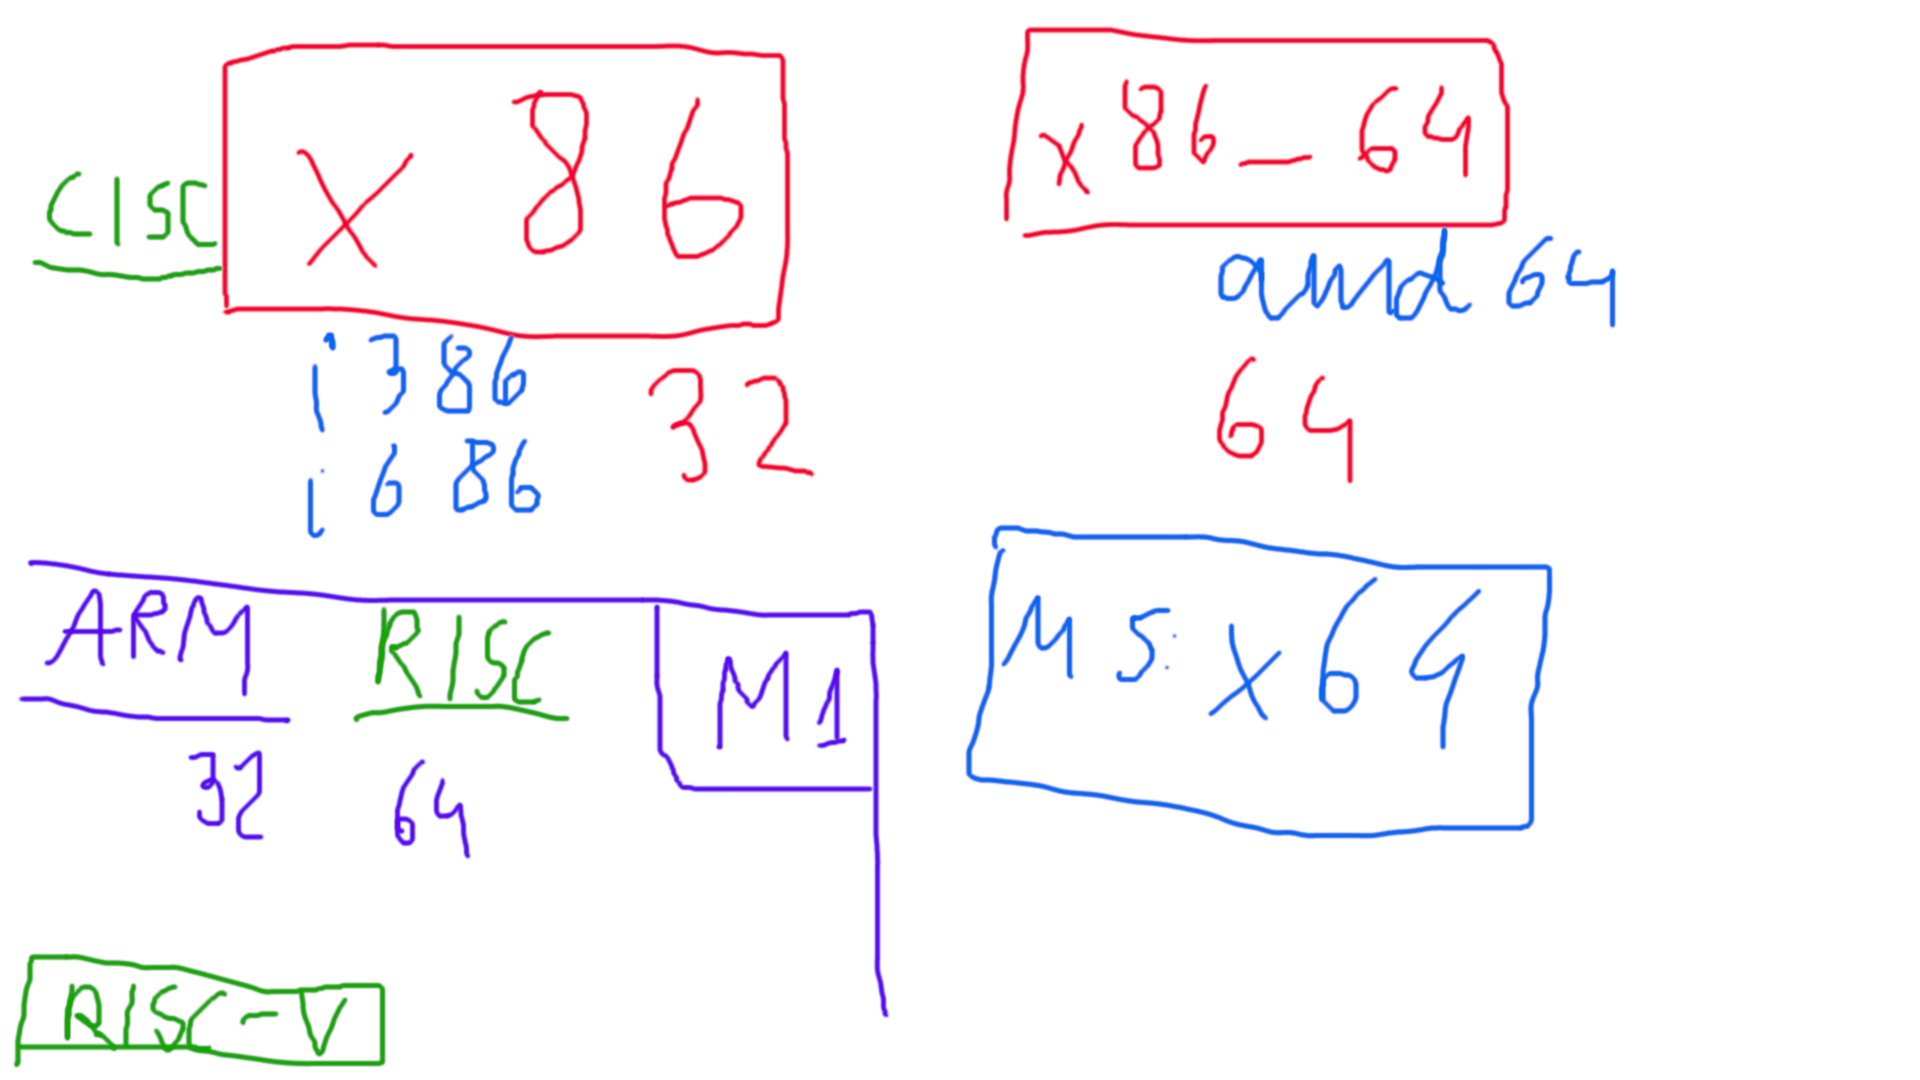 CISC x 86
i 386
i 686
32
x86_64
amd 64
64
ARM RISC M1
32 64
MS: x64
RISC-V